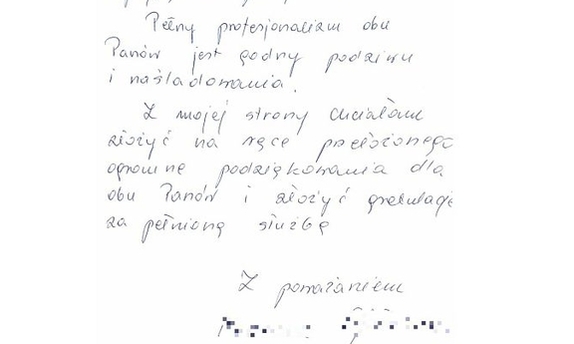 Pełny profesjonalizm obu
Panów jest godny podziwu
i naśladowania.
Z mojej strony chciałam
złożyć na ręce przełożonego
ogromne podziękowania dla
obu Panów i złożyć gratulacje
za pełnioną służbę
Z poważaniem